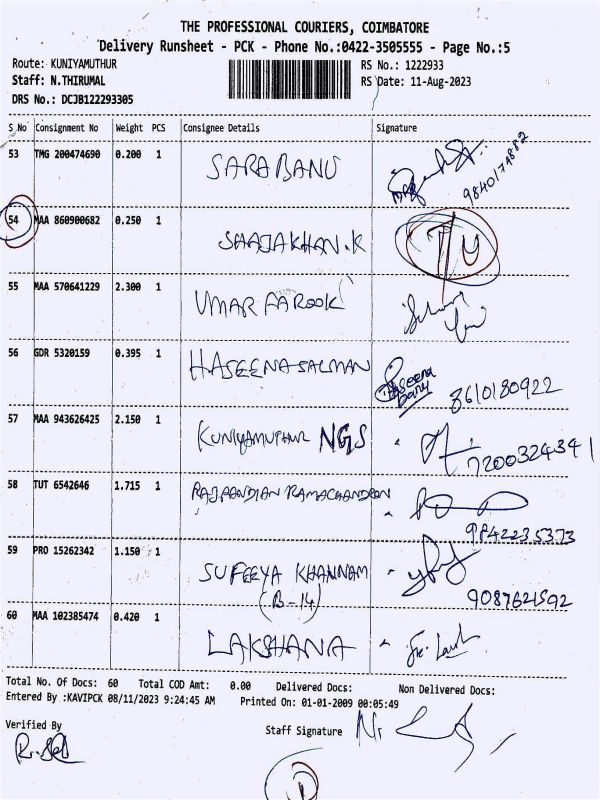 THE PROFESSIONAL COURIERS, COIMBATORE
Delivery Runsheet - PCK - Phone No.:0422-3505555 - Page No.:5
Route: KUNIYAMUTHUR RS No.: 1222933
Staff: N.THIRUMAL RS Date: 11-Aug-2023
DRS No.: DCJB122293305
S No Consignment No Weight PCS Consignee Details Signature
53 TMG 200474690 0.200 1 SARABANU
54 MAA 860900682 0.250 1 SHAJAKHAN.K T/U
55 MAA 570641229 2.300 1 UMAR FAROOK
56 GDR 5320159 0.395 1 HASEENA SALMAN Haseena banu 8610180922
57 MAA 943626425 2.150 1 KUNIYAMUTHUR NGS 7200324341
58 TUT 6542646 1.715 1 RAJPANDIAN RAMACHANDRAN 9842235373
59 PRO 15262342 1.150 1 SUFEEYA KHANNAM 9087621592
(B-14)
60 MAA 102385474 0.420 1 LAKSHANA
Total No. Of Docs: 60 Total COD Amt: 0.00 Delivered Docs: Non Delivered Docs:
Entered By :KAVIPCK 08/11/2023 9:24:45 AM Printed On: 01-01-2009 00:05:49
Verified By Staff Signature